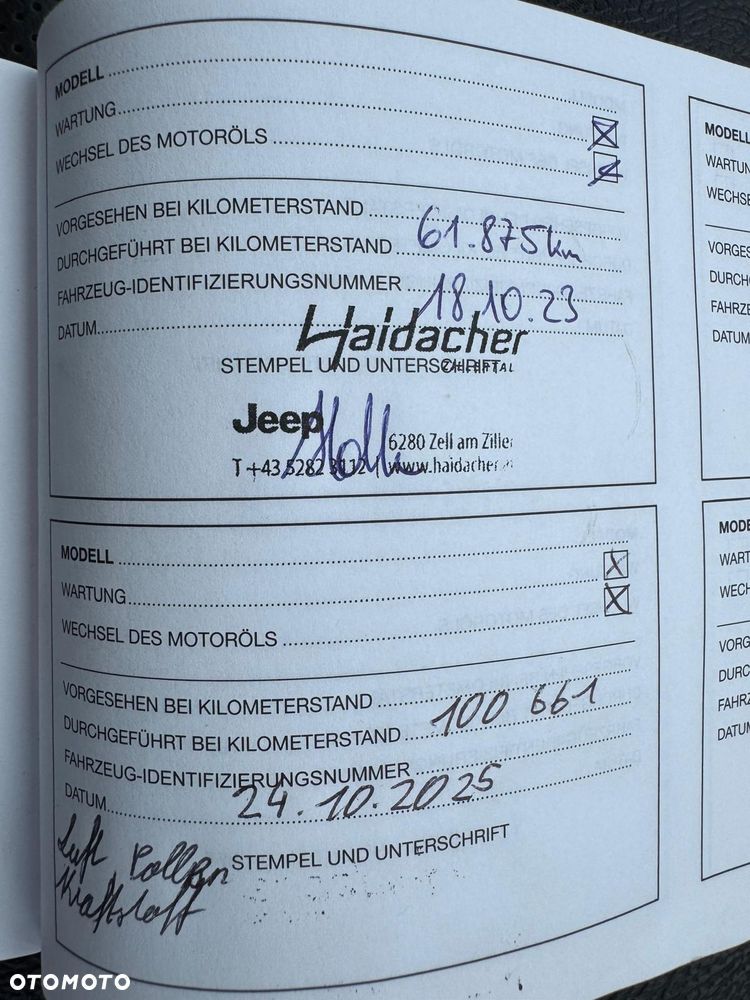 MODELL
WARTUNG
WECHSEL DES MOTORÖLS
VORGESEHEN BEI KILOMETERSTAND
DURCHGEFÜHRT BEI KILOMETERSTAND 61.875km
FAHRZEUG-IDENTIFIZIERUNGSNUMMER
DATUM 18.10.23
Haidacher
ZILLERTAL
STEMPEL UND UNTERSCHRIFT
Jeep
6280 Zell am Ziller
T +43 5282 3112 | www.haidacher.
MODELL
WARTUNG
WECHSEL DES MOTORÖLS
VORGESEHEN BEI KILOMETERSTAND
DURCHGEFÜHRT BEI KILOMETERSTAND 100 661
FAHRZEUG-IDENTIFIZIERUNGSNUMMER
DATUM 24.10.2025
Luft Pollen
Kraftstoff
STEMPEL UND UNTERSCHRIFT
MODELL
WARTUN
WECHSE
VORGES
DURCHG
FAHRZE
DATUM
MODE
WART
WECH
VORG
DURC
FAHRZ
DATUM
OTOMOTO